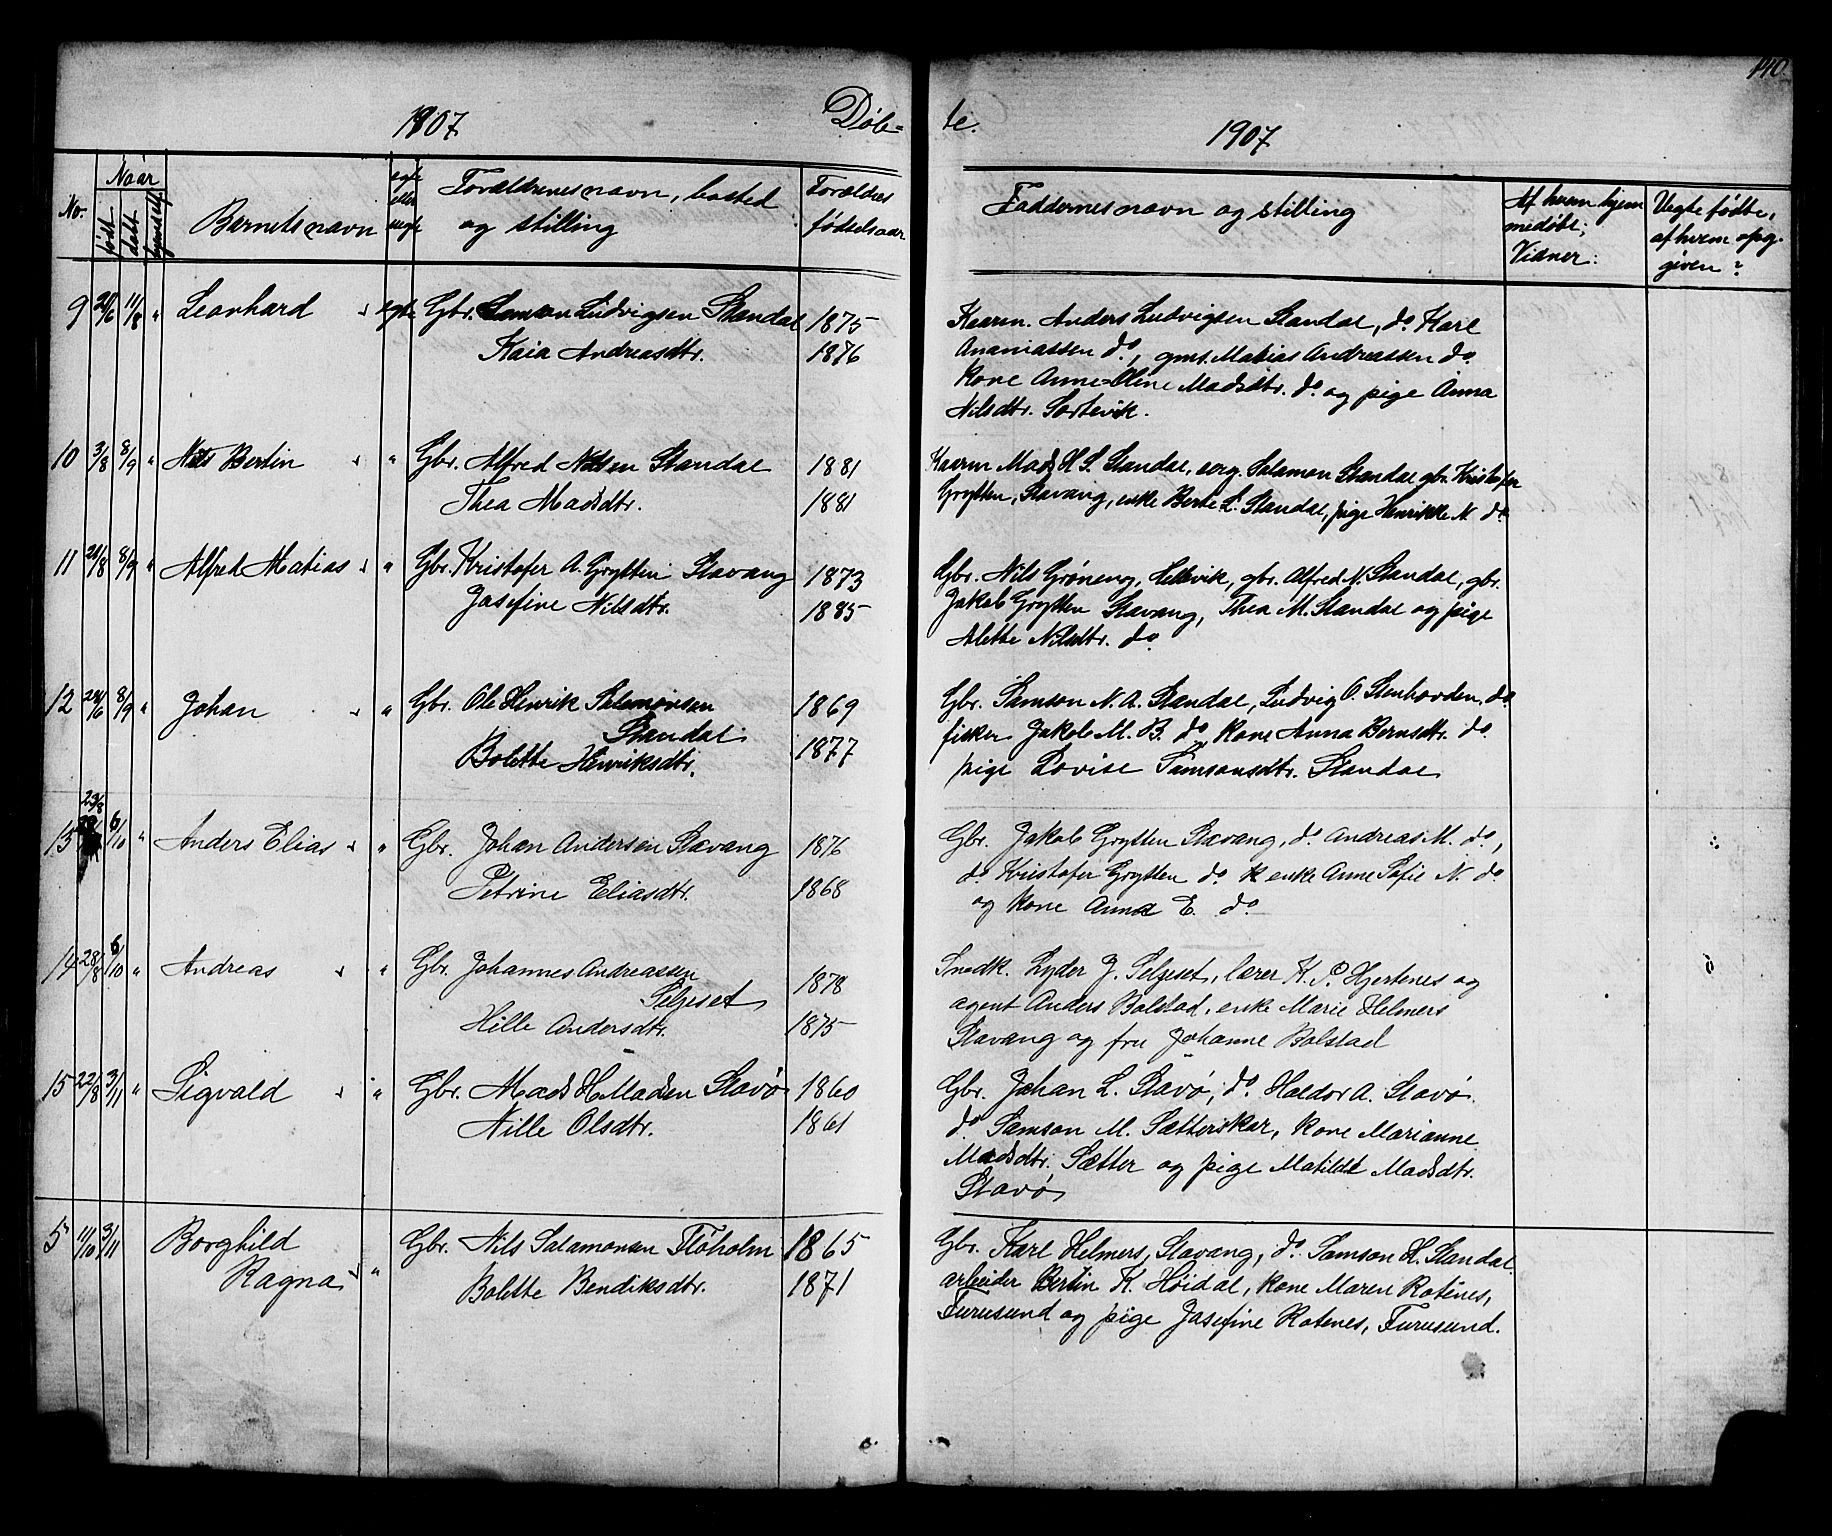 140.
1907
Døb=
te.
1907
No.
Naar
født
døbt
hjemedøbt
Barnets navn
egte eller uegte
Forældrenes navn, bosted og stilling
Forældres fødselsaar
Faddernes navn og stilling
Af hvem hjemmedøbt;
Vidner:
Uegte fødte,
af hvem opg-
given?
9 /6 11/8 " Leonhard egte Gbr. Samson Ludvigsen Standal 1875
Kaia Andreasdtr. 1876
Kaarm. Anders Ludvigsen Standal, do Karl
Ananiassen do, gms. Matias Andreassen do.
kone Anne=Oline Madsdtr. do og pige Anna
Nilsdtr. Sortevik.
10 3/8 8/9 " Nils Bertin " Gbr. Alfred Nilsen Standal 1881
Thea Madsdtr. 1881
Kaarm Mads H. S. Standal, Salamon Standal gbr. Kristofer
Grytten, Stavang, enke Berte L. Standal, pige Henrikke N. do
11 20/8 8/9 " Alfred Matias " Gbr. Kristofer A. Grytten Stavang 1873
Josefine Nilsdtr. 1885
Gbr. Nils Grøneng, Hellevik, gbr. Alfred N. Standal, gbr.
Jakob Grytten Stavang, Thea M. Standal og pige
Alette Nilsdtr. do
12 /6 8/9 " Johan " Gbr. Ole Henrik Salamonsen 1869
Standal
Bolette Henriksdtr. 1877
Gbr. Samson N. A. Standal, Ludvig O. Stenhovden, do
fisker Jakob M. B. do, kone Anna Berndtr. do.
pige Lovise Samsonsdtr. Standal
13 23/8 6/10 " Anders Elias " Gbr. Johan Andersen Stavang 1876
Petrine Eliasdtr. 1868
Gbr. Jakob Grytten Stavang, do. Andreas M. do,
do. Kristofer Grytten do. enke Anne Sofie N. do
og kone Anna E. do
14 28/8 6/10 " Andreas " Gbr. Johannes Andreassen 1878
Seljeset
Hille Andersdtr. 1875
Snedk. Lyder J. Seljeset, lærer K. P. Hjertenes og
agent Anders Bolstad, enke Marie Helmers
Stavang og fru Johanne Bolstad
15 22/8 3/11 " Sigvald " Gbr. Mads H. Madsen Stavø 1860
Nille Olsdtr. 1861
Gbr. Johan L. Stavø, do. Haldor A. Stavø
do. Samson M. Sætterskar, kone Marianne
Madsdtr. Sætter og pige Matilde Madsdtr.
Stavø
5 11/10 3/11 Borghild
Ragna " Gbr. Nils Salamonsen Fløholm 1865
Bolette Bendiksdtr. 1871
Gbr. Karl Helmers, Stavang, do. Samson H. Standal.
arbeider Bertin K. Høidal, kone Maren Rotenes,
Furusund og pige Josefine Rotenes, Furusund.